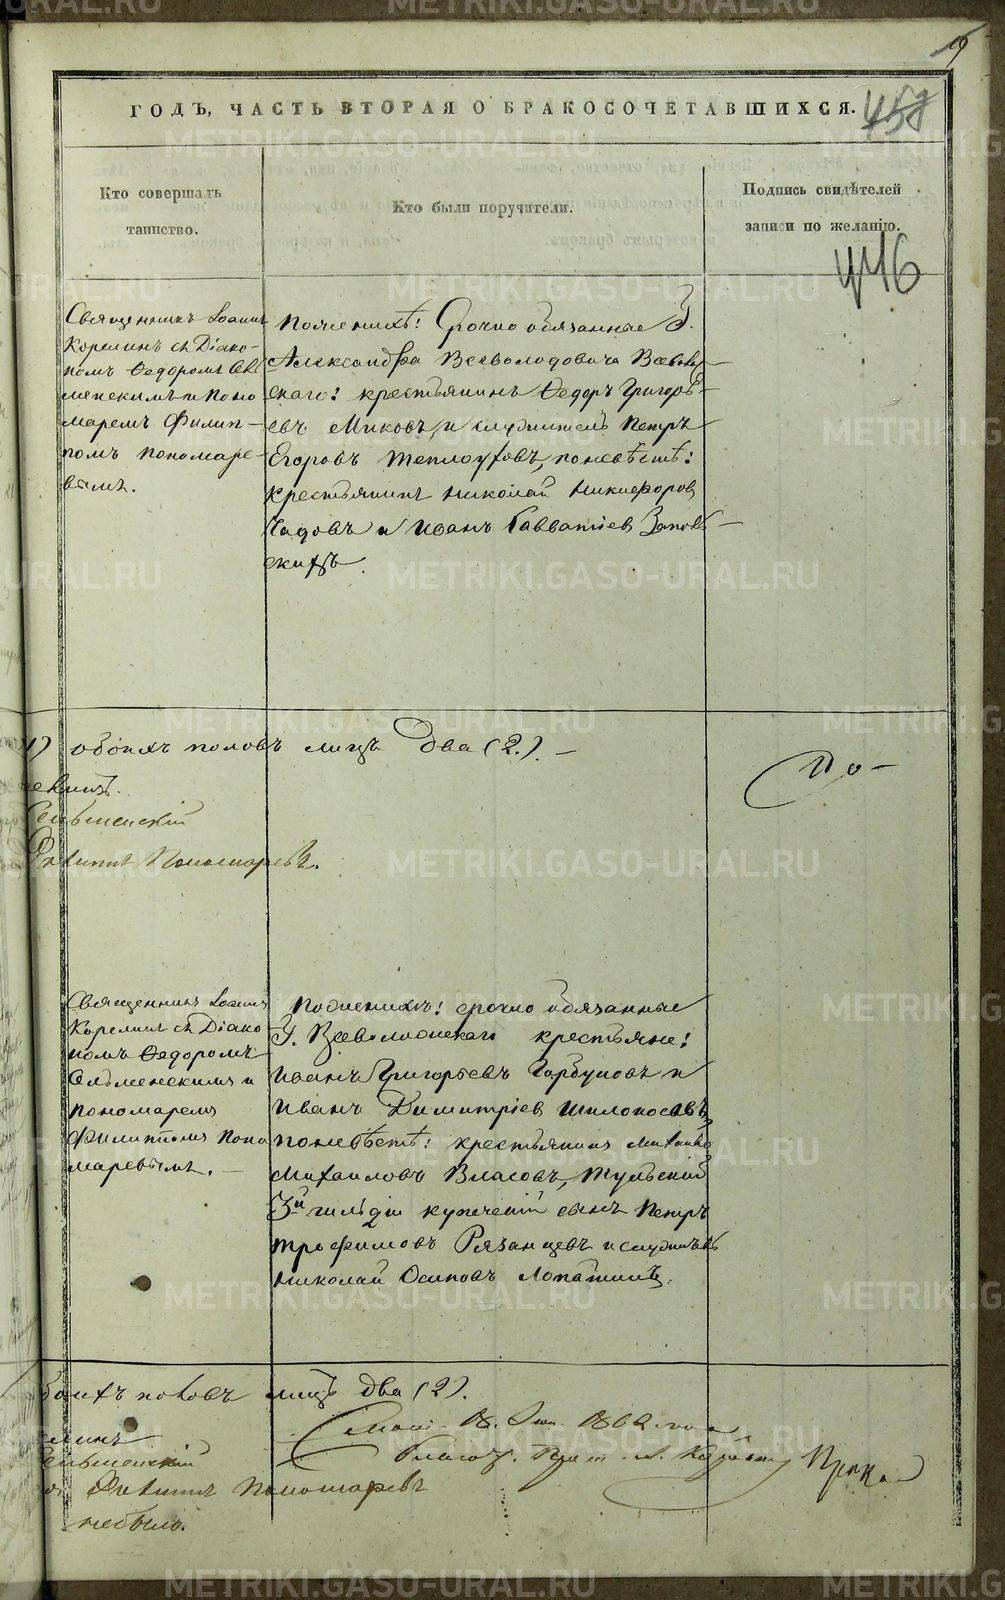 9
ГОДЪ, ЧАСТЬ ВТОРАЯ О БРАКОСОЧЕТАВШИХСЯ.
458
Кто совершалъ
таинство.
Кто были поручители.
Подпись свидѣтелей
записи по желанію.
416
Священникъ Іоаннъ
Корелинъ съ Діако-
номъ Ѳедоромъ
менскимъ и Поно
маремъ Филип-
помъ Пономаре-
вымъ.
По женихѣ: Срочно обязанные Г.
Александра Всеволодовича Всеволож-
скаго: крестьянинъ Ѳедоръ Григорь-
евъ Миковъ, и служитель Петръ
Егоровъ Теплоуховъ, по невѣстѣ:
крестьянинъ Николай Никифоров
Чадовъ и Иванъ Савватіев
скихъ.
обоихъ половъ лицъ два (2). –
Филиппъ Пономаревъ.
Священникъ Іоаннъ
Корелинъ съ Діако
номъ Ѳедоромъ
и
Пономаремъ
Филиппомъ Поно
маревымъ. –
По женихѣ: срочно обязанные
Г. Всеволожскаго крестьяне:
Иванъ Григорьевъ Горбуновъ и
Иванъ Димитріев Шилоносовъ,
по невѣстѣ: крестьянинъ Михайло
Михаиловъ Власовъ, Тульскій
3й гильдіи купеческій сынъ Петръ
Трофимовъ Рязанцевъ и служитель
Николай Осиповъ Лопатинъ.
боихъ половъ лицъ два (2).
18. 1862. года
Филиппъ Пономаревъ
небыло.
METRIKI.GASO-URAL.RU